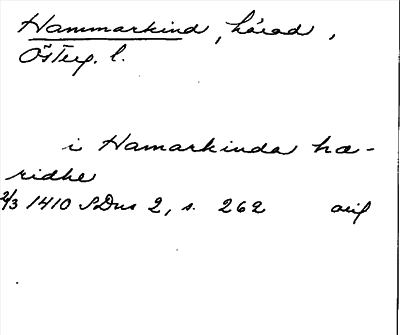 Hammarkind, härad,
Österg. l.
i Hamarkinda hæ-
ridhe
2/3 1410 SDns 2, s. 262 orig